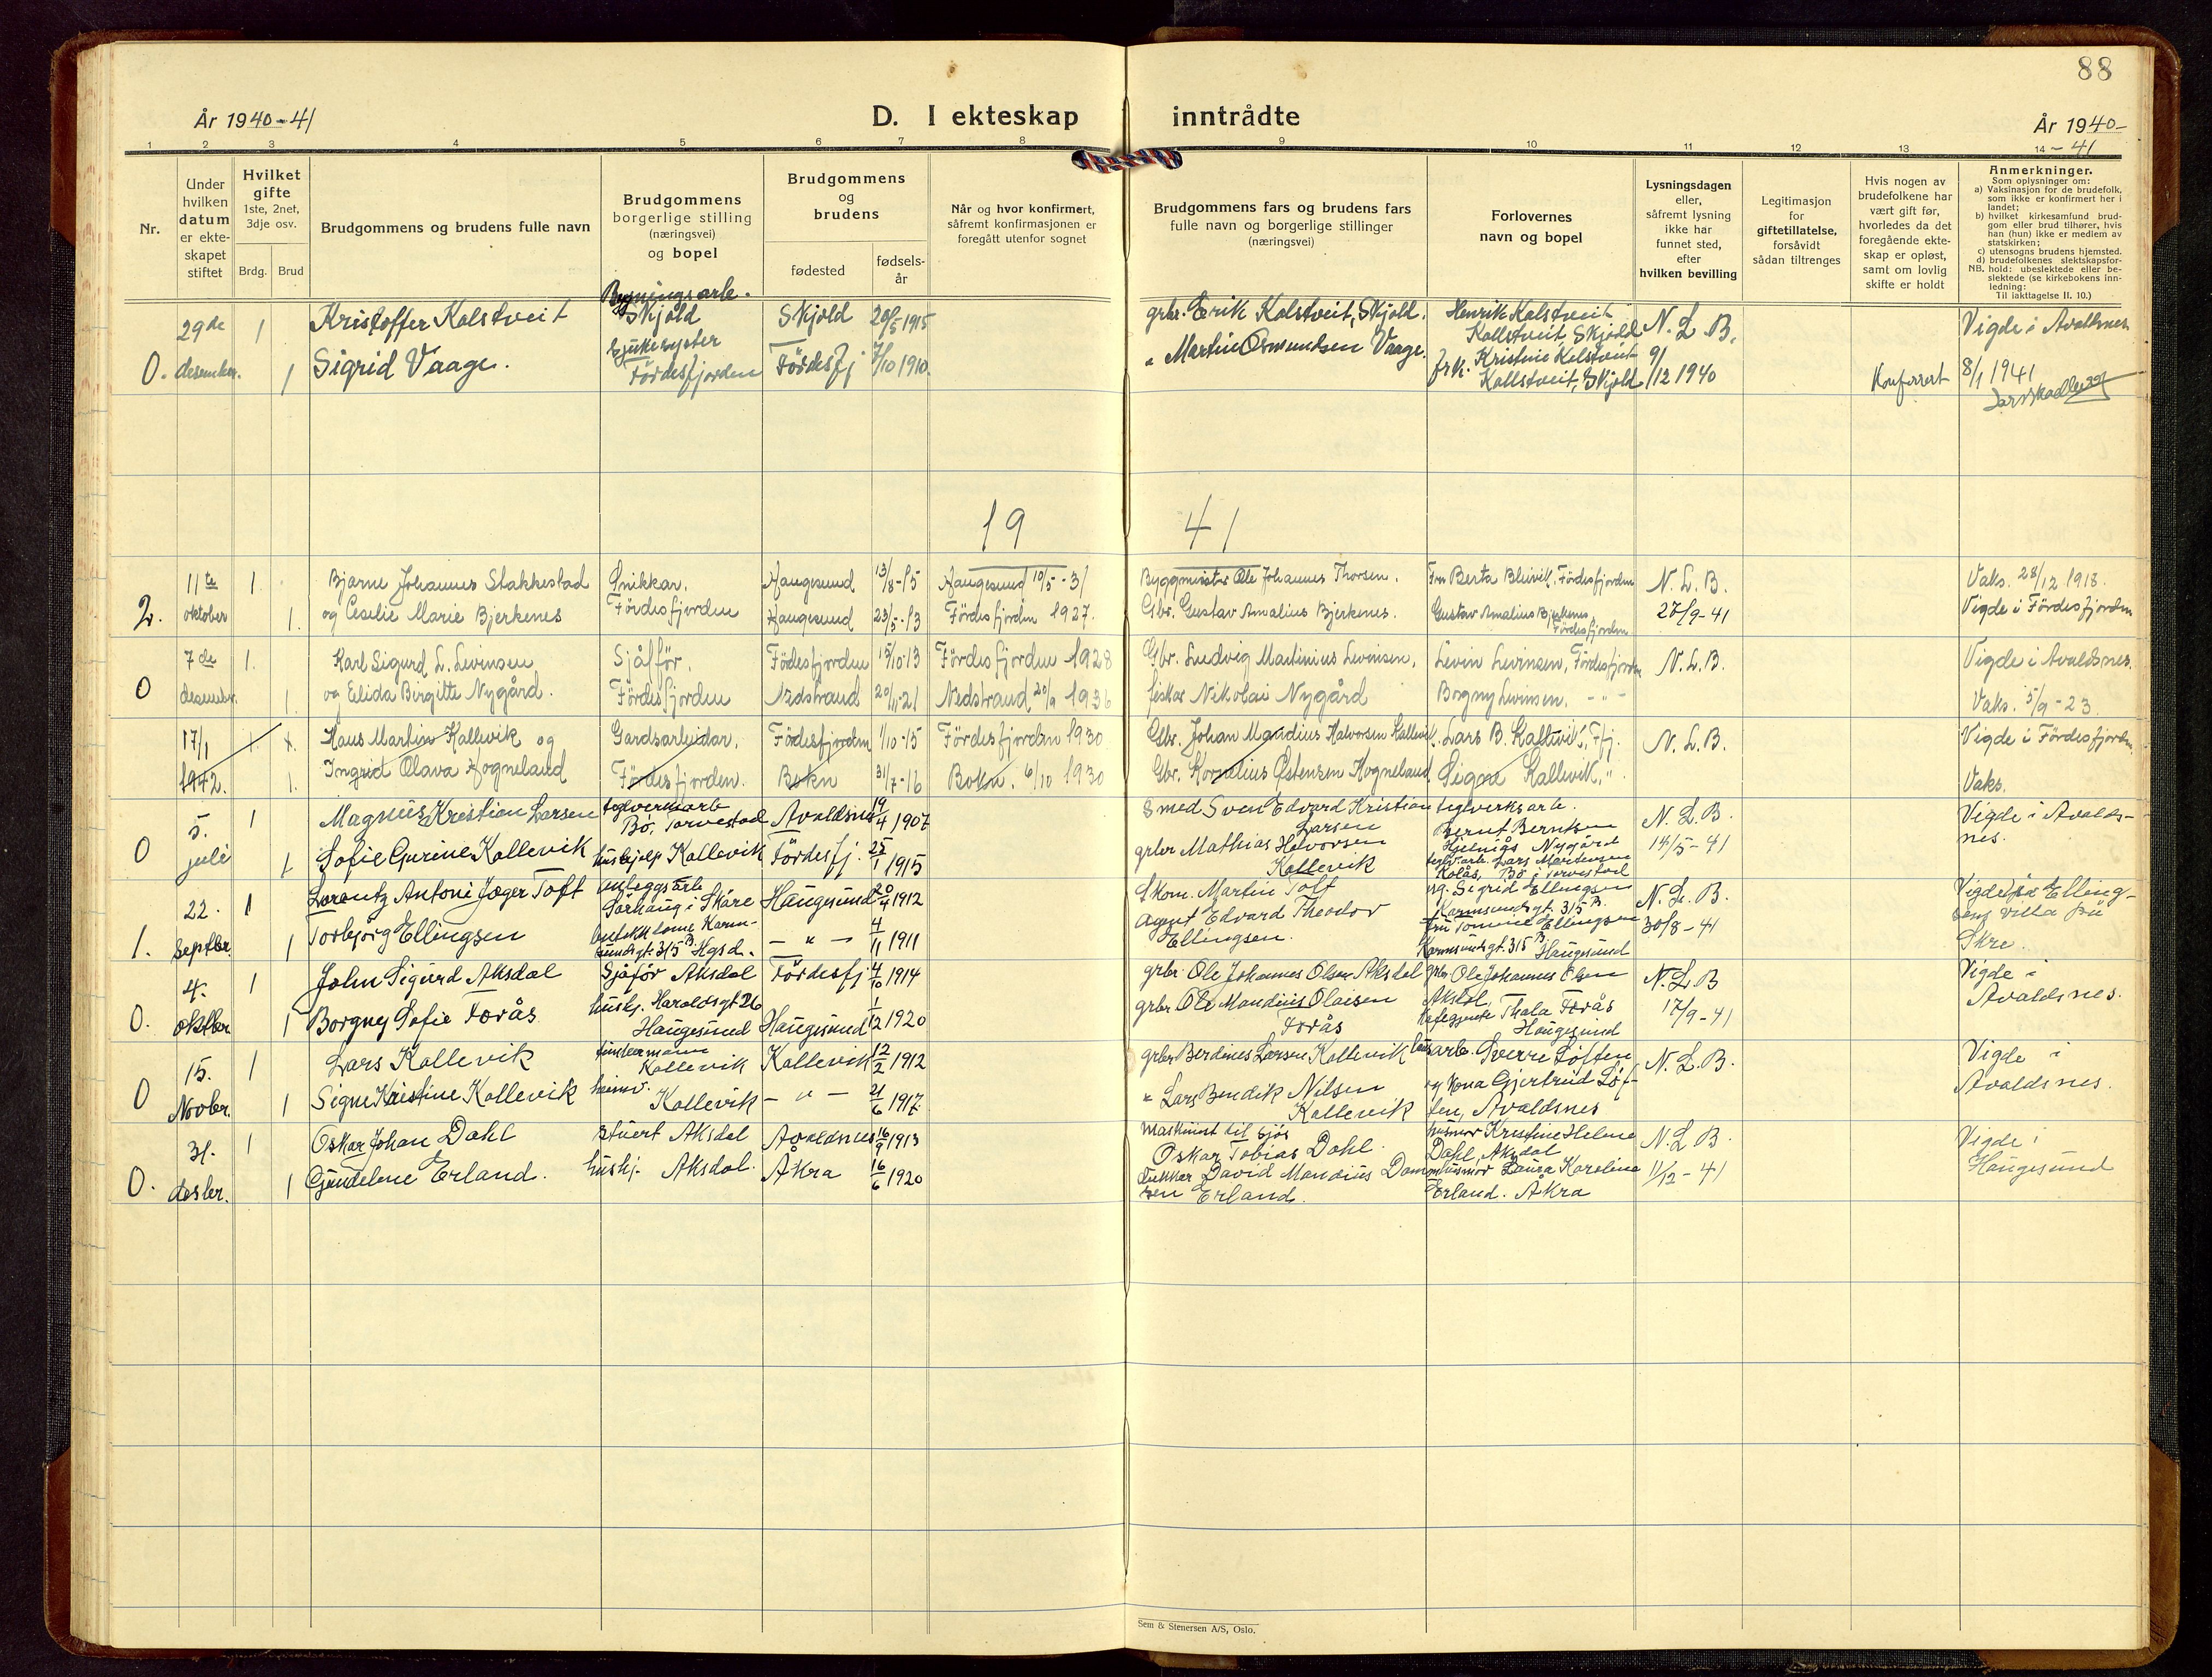 88
År 1940-41
D. I ekteskap inntrådte
År 1940-
-41
1 2 3 4 5 6 7 8 9 10 11 12 13 14
Nr.
Under hvilken datum er ekteskapet stiftet
Hvilket gifte
1ste, 2net, 3dje osv.
Brdg. Brud
Brudgommens og brudens fulle navn
Brudgommens borgerlige stilling (næringsvei) og bopel
Brudgommens og brudens
fødested
fødselsår
Når og hvor konfirmert, såfremt konfirmasjonen er foregått utenfor sognet
Brudgommens fars og brudens fars fulle navn og borgerlige stillinger (næringsvei)
Forlovernes navn og bopel
Lysningsdagen eller, såfremt lysning ikke har funnet sted, efter hvilken bevilling
Legitimasjon for giftetillatelse, forsåvidt sådan tiltrenges
Hvis nogen av brudefolkene har vært gift før, hvorledes da det foregående ekteskap er opløst, samt om lovlig skifte er holdt
Anmerkninger.
Som oplysninger om:
a) Vaksinasjon for de brudefolk, som ikke er konfirmert her i landet;
b) hvilket kirkesamfund brudgom eller brud tilhører, hvis han (hun) ikke er medlem av statskirken;
c) utensogns brudens hjemsted.
d) brudefolkenes slektskapsforhold: ubeslektede eller beslektede (se kirkebokens innledning:
NB.
Til iakttagelse II. 10.)
29de 1 Kristoffer Kolstveit Bygningsarb. Skjold Skjold 20/5 1915 grbr. Erik Kolstveit, Skjold. Henrik Kolstveit Kollstveit Skjold N. L. B. Vigde i Avaldsnes
0. desember. 1 Sigrid Vaage. Sjukesyster Fördesfjorden Fördesfj 7/10 1910. " Martin Osmundsen Vaage. frk. Kristine Kolstveit Kollstveit, Skjold 9/12 1940 Konferert 8/1 1941
19 41
11te 1. Bjarne Johannes Stakkestad Snikkar. Haugesund 13/8-15 Haugesund 10/5-31 Byggmeister Ole Johannes Thorsen. Fru Berta Bleivik, Fördesfjorden N. L. B. Vaks. 28/12 1918.
2. oktober 1. og Cecilie Marie Bjerkenes Fördesfjorden Haugesund 23/5-13 Fördesfjorden 1927. Gbr. Gustav Amalius Bjerkenes. Gustav Amalius Bjerkenes, Fördesfjorden 27/9-41 Vigde i Fördesfjorden
7de 1. Karl Sigurd L. Levinsen Sjåfför. Födesfjorden 15/10-13 Fördesfjorden 1928 Gbr. Ludvig Martinius Levinsen, Levin Levinsen, Fördesfjorden N. L. B. Vigde i Avaldsnes.
0 desember. 1. og Elida Birgitte Nygård. Fördesfjorden Nedstrand 20/11-21 Nedstrand 20/9 1936 fiskar Nikolai Nygård Borgny Levinsen, - " - Vaks. 5/9-23
17/1 1. 1. Hans Martin Kallevik og Gardsarbeidar, Födesfjorden 1/10-15 Fördesfjorden 1930 Gbr. Johan Mandius Halvorsen Kallevik. Lars B. Kallevik, Ffj. N. L. B. Vigde i Fördesfjorden.
1942. 1. Ingrid Olava Hogneland Fördesfjorden. Bokn 31/7-16 Bokn. 6/10 1930 Gbr. Kornelius Østensen Hogneland Signe Kallevik, ". Vaks.
5. 1 Magnus Kristian Larsen teglverksarb Bö, Torvestad Avaldsnes 19/4 1907 Smed Sven Edvard Kristian Larsen teglverksarb. Bernt Berntsen N. L. B. Vigde i Avaldsnes.
0 juli 1 Sofie Gurine Kallevik hushjelp Kallevik Fördesfj. 25/1 1915 grbr Mathias Halvorsen Kallevik teglv.arb. Lars Mortensen Kolås, Bö i Torvestad 14/5-41
22. 1 Lorentz Antoni Jæger Toft anleggsarb Sörhaug i Skåre Haugesund 20/4 1912 Skom. Martin Toft og. Sigrid Ellingsen Karmsundsgt. 315 B. N. L. B. Vigde på Ellingsens villa på Skre.
1. septbr. 1 Torbjörg Ellingsen Karmsundsgt. 315 B Hgsd. - " - 4/11 1911 agent Edvard Theodor Ellingsen. fru Tomine Ellingsen Karmsundsgt. 315 B. Haugesund 30/8-41
4. 1 John Sigurd Aksdal Sjåför Aksdal Fördesfj 4/10 1914 grbr Ole Johannes Olsen Aksdal grbr Ole Johannes Olsen Aksdal, N. L. B Vigde i Avaldsnes.
0. oktbr. 1 Borgny Sofie Forås hushj. Haraldsgt 26 Haugesund Haugesund 1/12 1920 grbr Ole Mandius Olaisen Forås Thala Forås Haugesund 17/9-41
15. 1 Lars Kallevik tømmermann Kallevik Kallevik 12/2 1912 grbr Berdines Larsen Kallevik Sverre Löften N. L. B. Vigde i Avaldsnes.
0 Novbr. 1 Signe Kristine Kallevik heimv. Kallevik - " - 21/6 1917 " Lars Bendik Nilsen Kallevik og Kona Gjertrud Löften, Avaldsnes
31. 1 Oskar Johan Dahl Stuert Aksdal Avaldsnes 16/9 1913 maskinist til sjös Oskar Tobias Dahl. husmor Kristine Helene Dahl, Aksdal N. L. B. Vigde i Haugesund
0. desbr. 1 Gjendelene Erland. hushj. Aksdal. Åkra 16/6 1920 David Mandius Erland. husmor Laura Karoline Erland. Åkra 11/12-41
Sem & Stenersen A/S, Oslo.